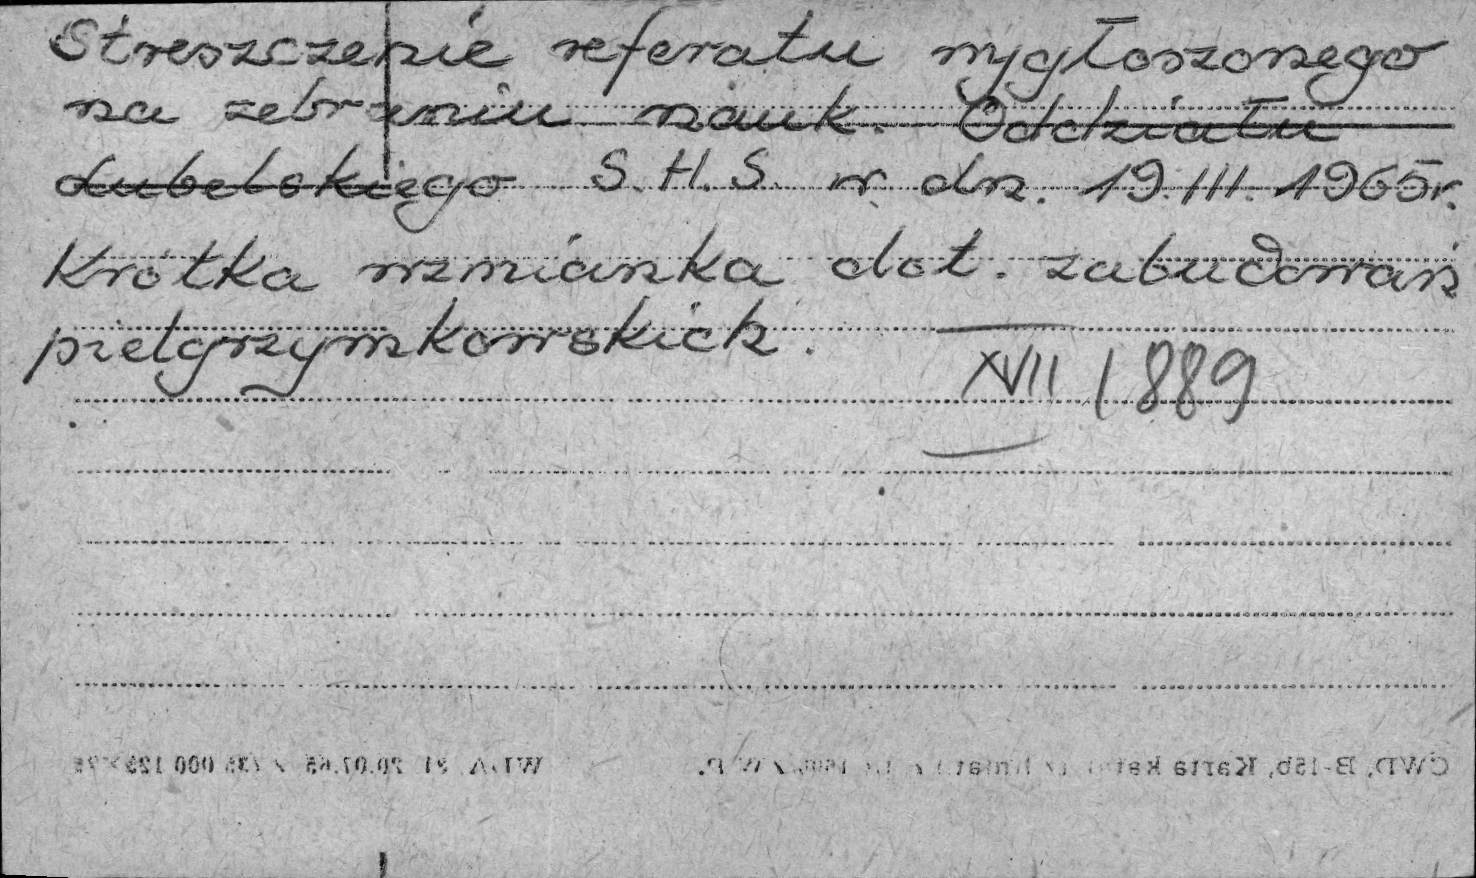 Streszczenie referatu wygłoszonego
na zebraniu nauk. Oddziału
Lubelskiego S.H.S. w dn. 19.III.1965r.
Krótka wzmianka dot. zabudowań
pielgrzymkowskich.
XVII/889
CWD, B-15b, Karta